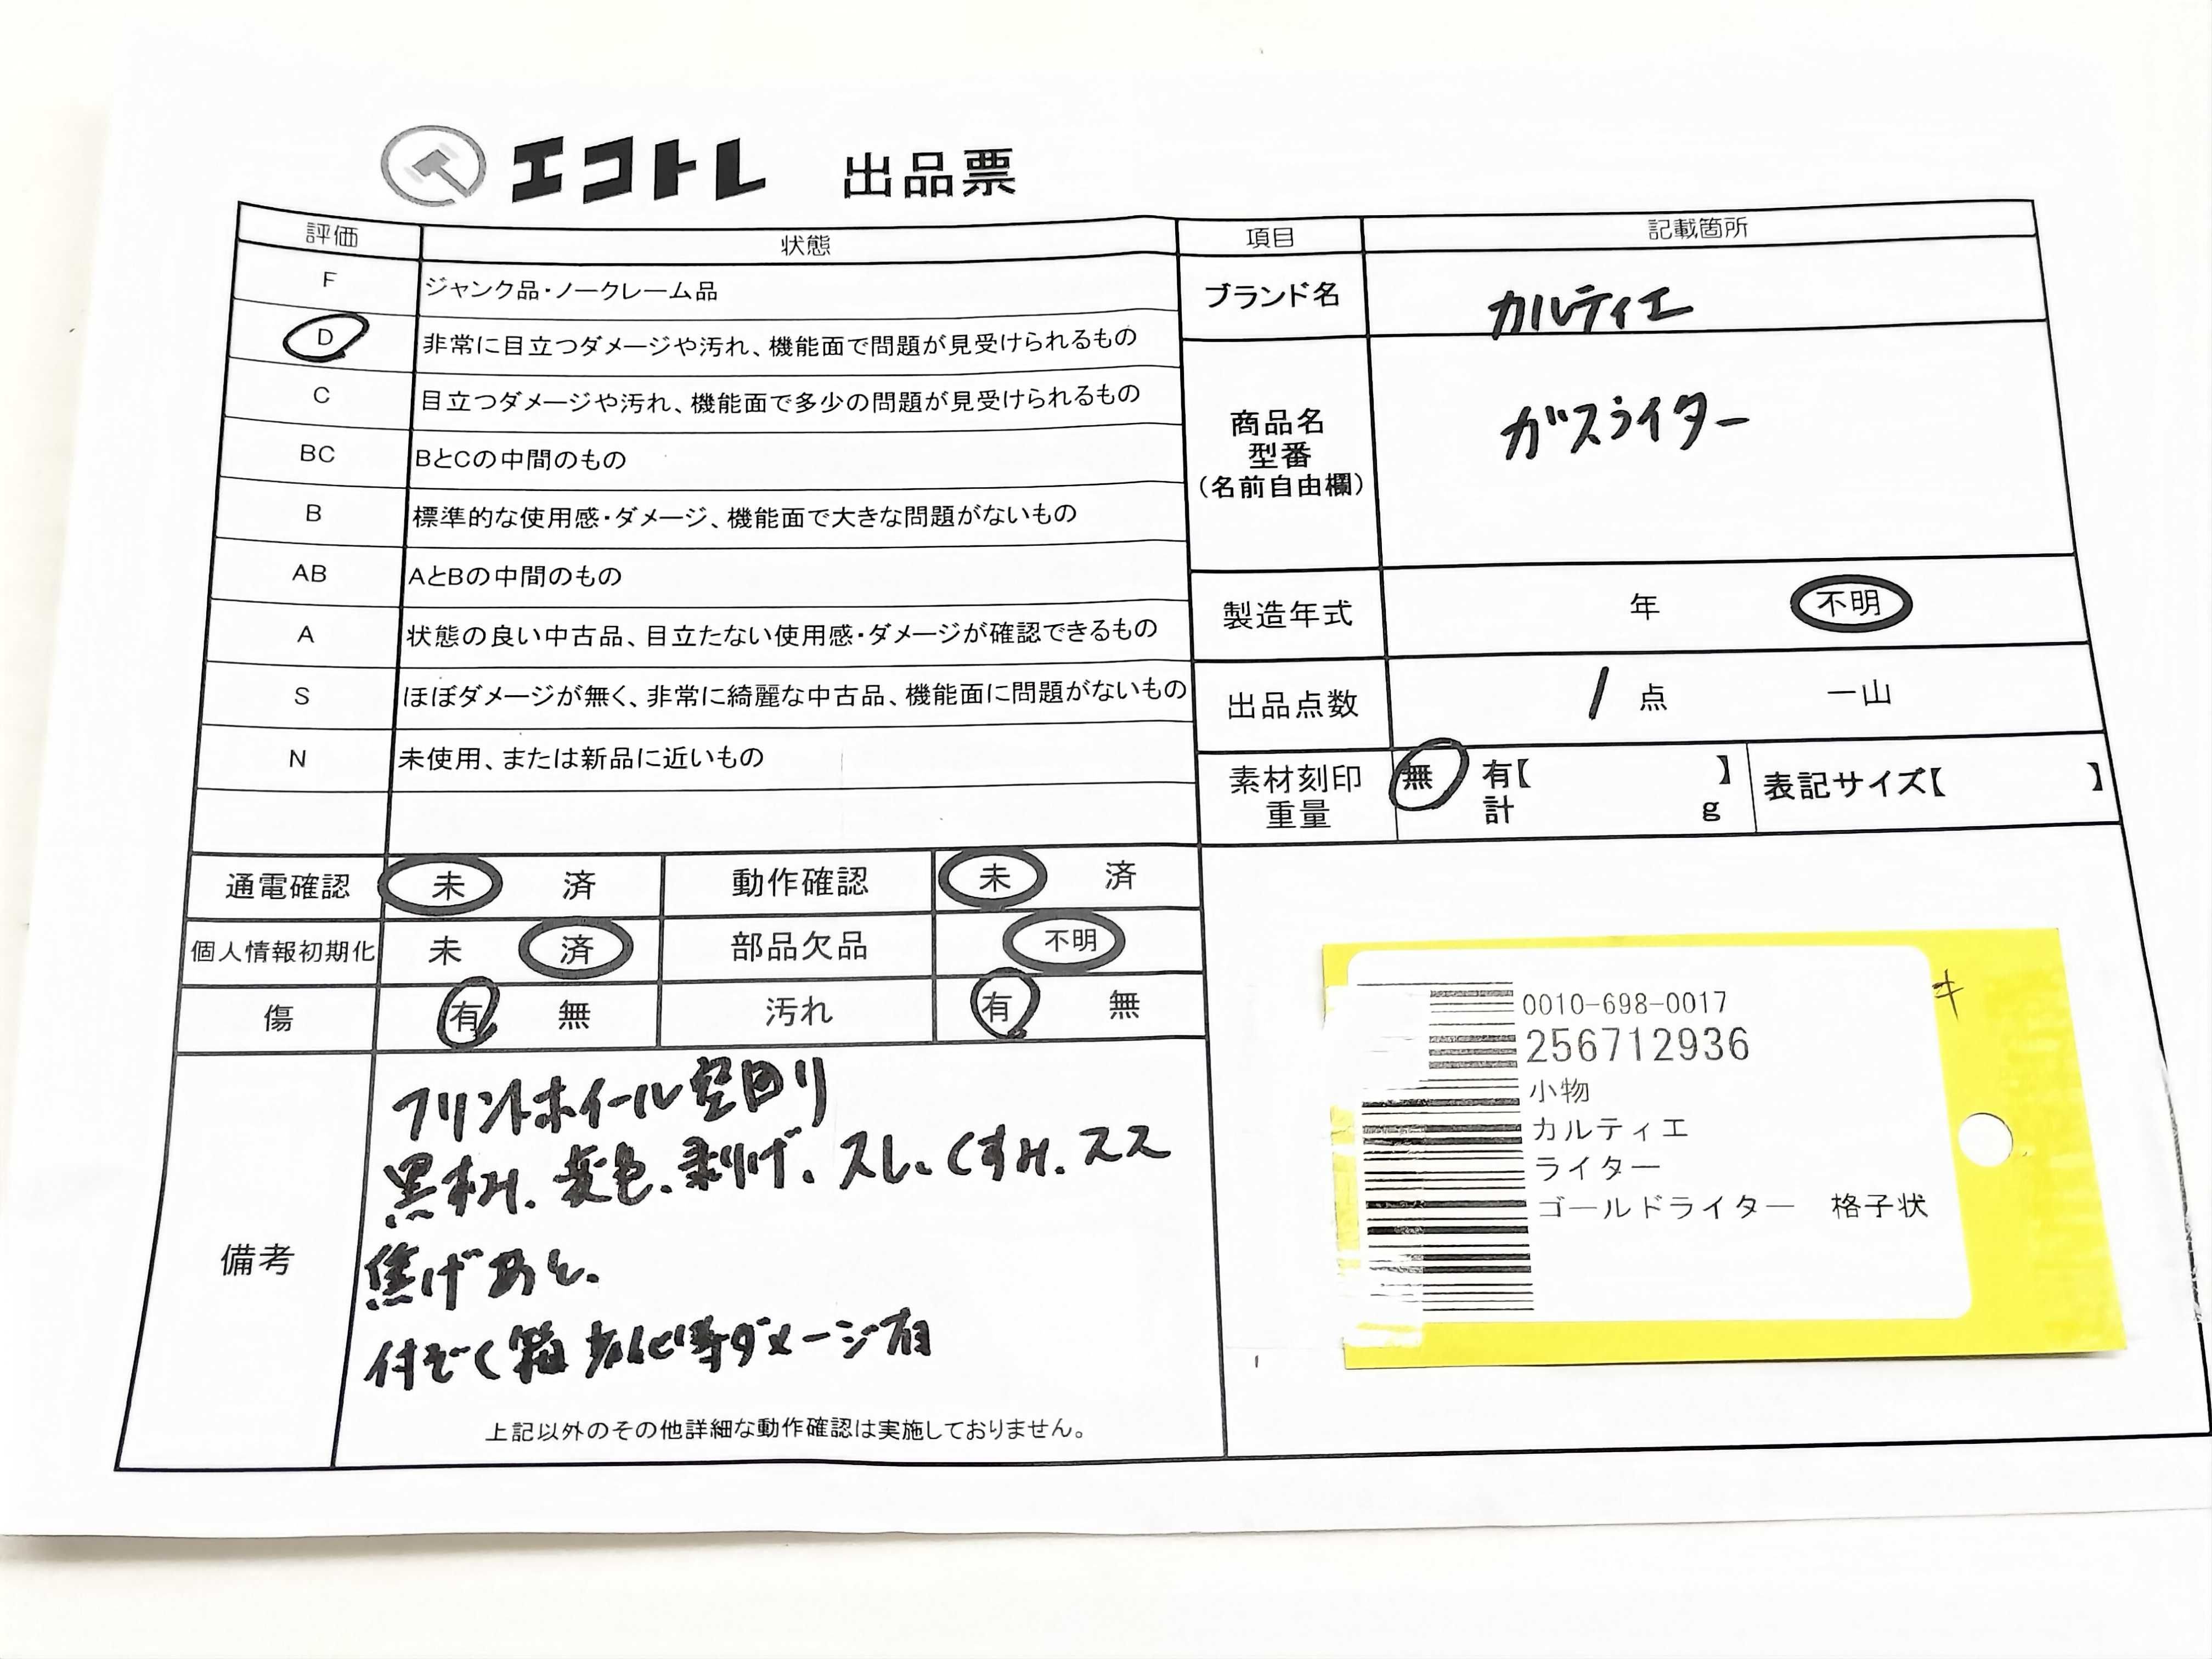 エコトレ 出品票
評価 状態
F ジャンク品・ノークレーム品
D 非常に目立つダメージや汚れ、機能面で問題が見受けられるもの
C 目立つダメージや汚れ、機能面で多少の問題が見受けられるもの
BC BとCの中間のもの
B 標準的な使用感・ダメージ、機能面で大きな問題がないもの
AB AとBの中間のもの
A 状態の良い中古品、目立たない使用感・ダメージが確認できるもの
S ほぼダメージが無く、非常に綺麗な中古品、機能面に問題がないもの
N 未使用、または新品に近いもの
通電確認 未 済 動作確認 未 済
個人情報初期化 未 済 部品欠品 不明
傷 有 無 汚れ 有 無
備考
フリントホイール空回り
黒ずみ、変色、剥げ、スレ、くすみ、スス
焦げあと、
付ぞく箱 劣化等ダメージ有
上記以外のその他詳細な動作確認は実施しておりません。
項目 記載箇所
ブランド名 カルティエ
商品名
型番
(名前自由欄)
ガスライター
製造年式 年 不明
出品点数 1 点 一山
素材刻印 無 有【 】
重量 計 g
表記サイズ【 】
0010-698-0017
256712936
小物
カルティエ
ライター
ゴールドライター 格子状
キ